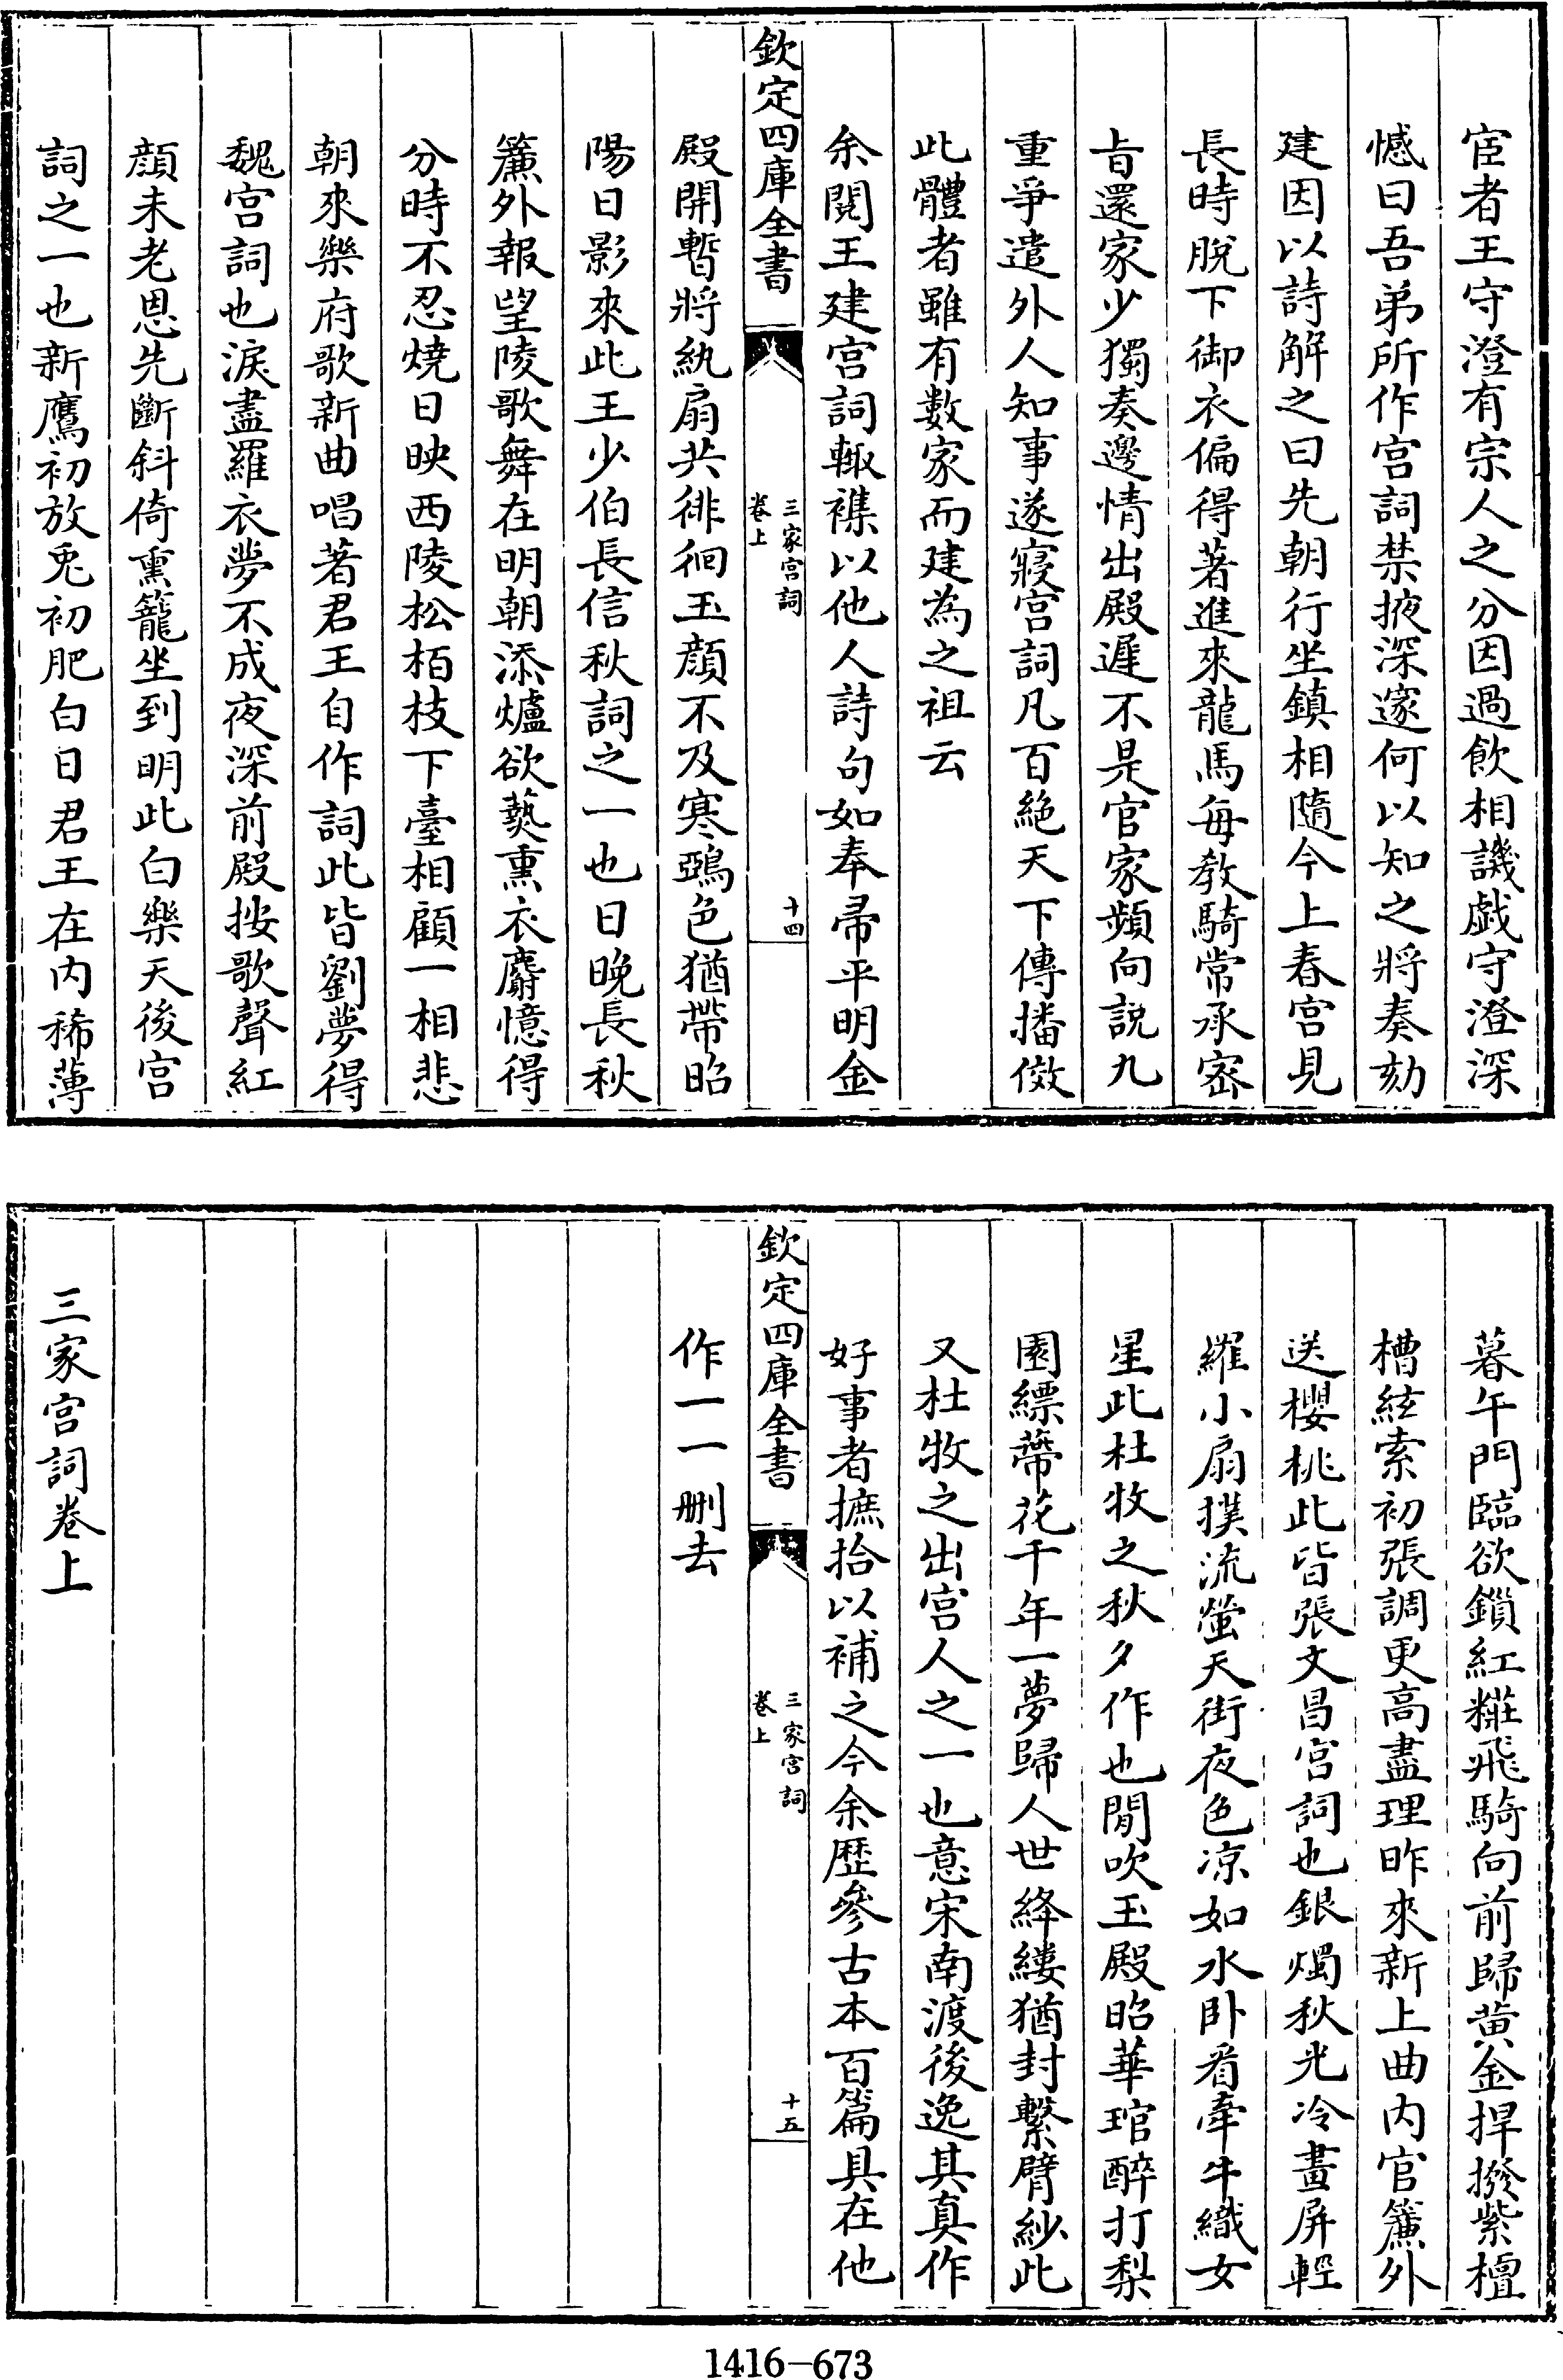 宦者王守澄有宗人之分因過飲相譏戯守澄深
憾曰吾弟所作宫詞禁掖深邃何以知之將奏劾
建因以詩解之曰先朝行坐鎮相隨今上春宫見
長時脱下御衣偏得著進來龍馬每教騎常承宻
㫖還家少獨奏邊情出殿遲不是官家頻向説九
重爭遣外人知事遂寢宫詞凡百絶天下傳播倣
此體者雖有數家而建為之祖云
余閲王建宫詞輙襍以他人詩句如奉帚平明金
欽定四庫全書
三家宫詞
卷上
十四
殿開暫將紈扇共徘徊玉顔不及寒鵶色猶帶昭
陽日影來此王少伯長信秋詞之一也日晚長秋
簾外報望陵歌舞在明朝添爐欲爇熏衣麝憶得
分時不忍燒日映西陵松栢枝下臺相顧一相悲
朝來樂府歌新曲唱著君王自作詞此皆劉夢得
魏宫詞也淚盡羅衣夢不成夜深前殿按歌聲紅
顔未老恩先斷斜倚熏籠坐到明此白樂天後宫
詞之一也新鷹初放兎初肥白日君王在内稀薄
暮午門臨欲鎖紅糚飛騎向前歸黄金捍撥紫檀
槽絃索初張調更高盡理昨來新上曲内官簾外
送櫻桃此皆張文昌宫詞也銀燭秋光冷畫屏輕
羅小扇撲流螢天街夜色凉如水卧看牽牛織女
星此杜牧之秋夕作也閒吹玉殿昭華琯醉打梨
園縹蔕花千年一夢歸人世絳縷猶封繫臂紗此
又杜牧之出宫人之一也意宋南渡後逸其真作
好事者摭拾以補之今余歴參古本百篇具在他
欽定四庫全書
三家宫詞
卷上
十五
作一一删去
三家宫詞卷上
1416-673